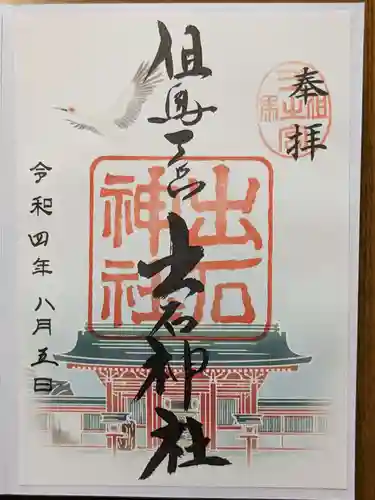 奉拝
但馬一宮 出石神社
出石神社
令和四年八月五日